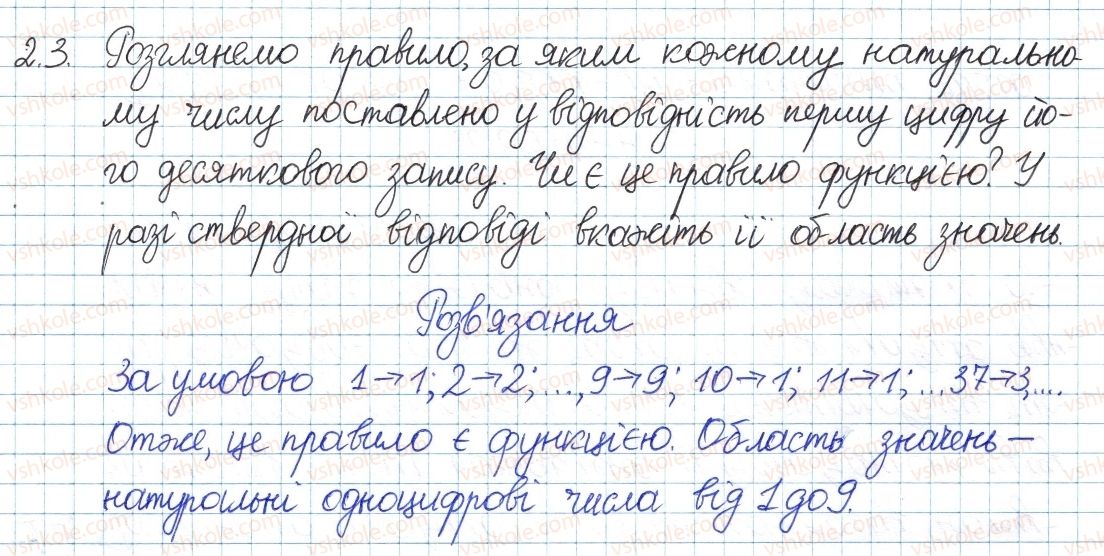 2.3. Розглянемо правило, за яким кожному натурально-
му числу поставлено у відповідність першу цифру йо-
го десяткового запису. Чи є це правило функцією? У
разі ствердної відповіді вкажіть її область значень.
Розв'язання
За умовою 1→1; 2→2; ..., 9→9; 10→1; 11→1; ...37→3,....
Отже, це правило є функцією. Область значень –
натуральні одноцифрові числа від 1 до 9.